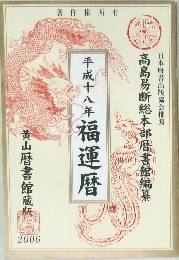 著作権所有
日本暦書出版協会推薦
高島易断総本部暦書館編纂
平成十八年
福運暦
黄山暦書館蔵版
2006